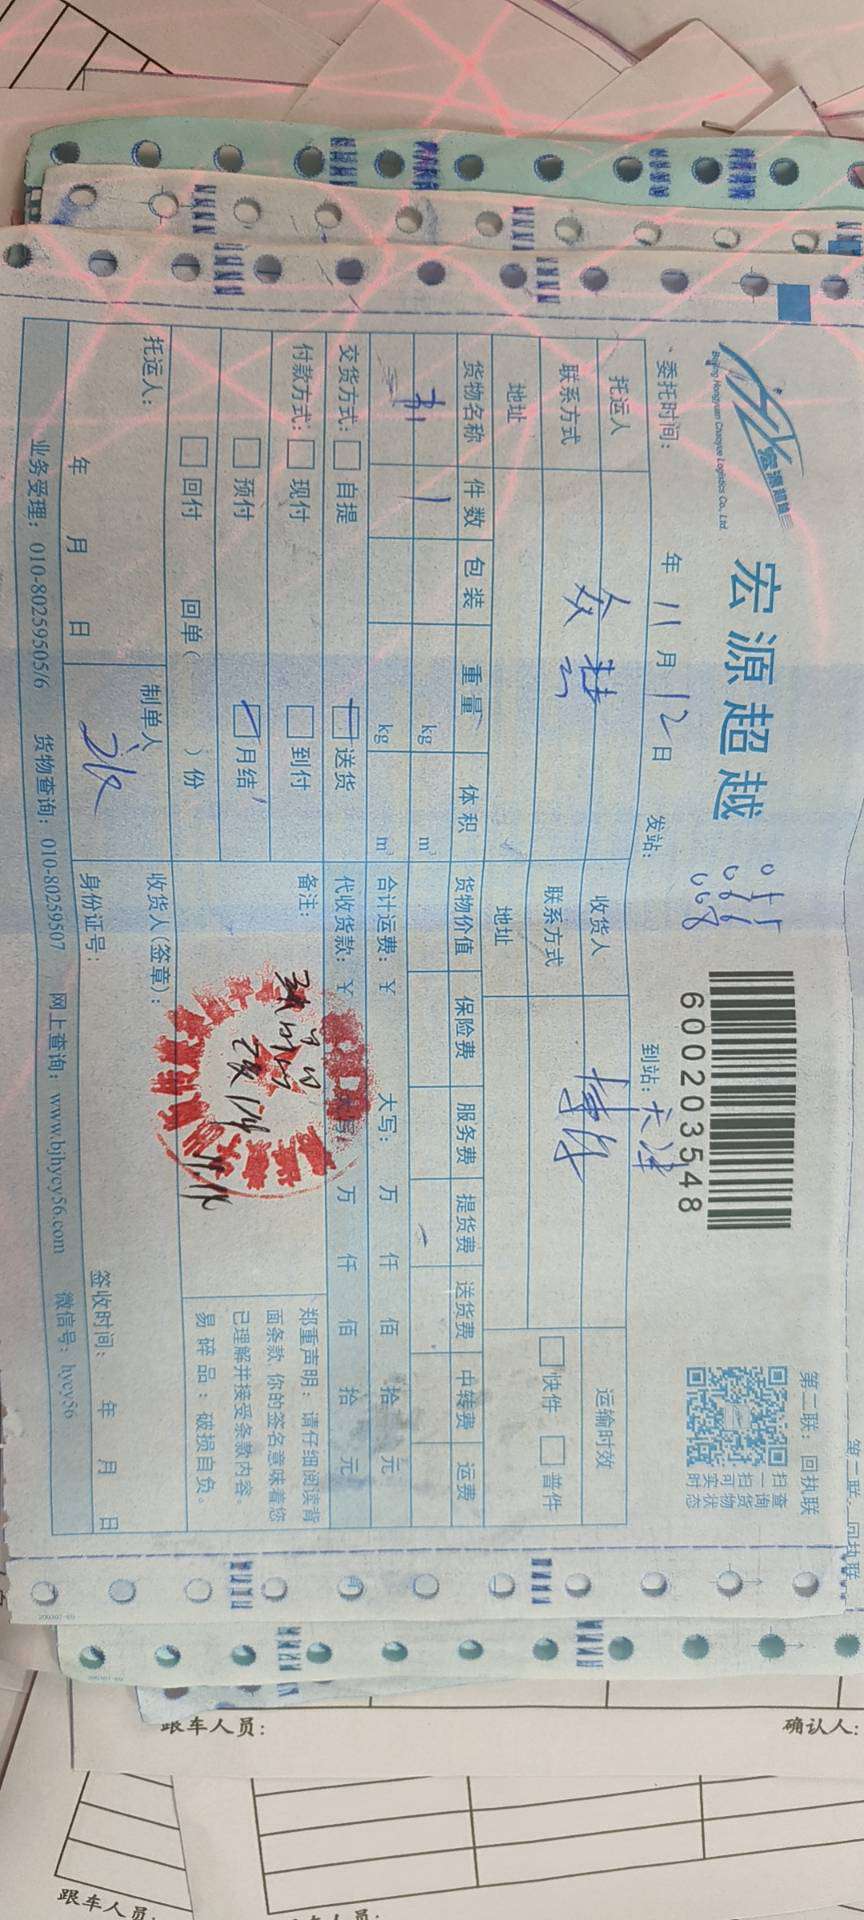 第二联：回执联
宏源超越
Beijing Hongyuan Chaoyue Logistics Co., Ltd.
6000203548
扫查
一询
扫货
可物
实状
时态
委托时间： 年 11 月 12 日 发站： 到站：天津
托运人 收货人 运输时效
联系方式 联系方式 快件 普件
地址 地址
货物名称 件数 包装 重量 体积 货物价值 保险费 服务费 提货费 送货费 中转费 运费
1 kg m³
kg m³ 合计运费：￥ 大写： 万 仟 佰 拾 元
交货方式： 自提 送货 代收货款：￥ 大写： 万 仟 佰 拾 元
付款方式： 现付 到付 备注：
预付 月结
回付 回单（ ）份
郑重声明：请仔细阅读背
面条款,你的签名意味着您
已理解并接受条款内容。
易碎品：破损自负。
托运人： 制单人 收货人(签章)：
年 月 日 身份证号： 签收时间： 年 月 日
业务受理：010-80259505/6 货物查询：010-80259507 网上查询：www.bjhycy56.com 微信号：hycy56
第二联：回执联
跟车人员： 确认人：
跟车人员：
跟车人员：